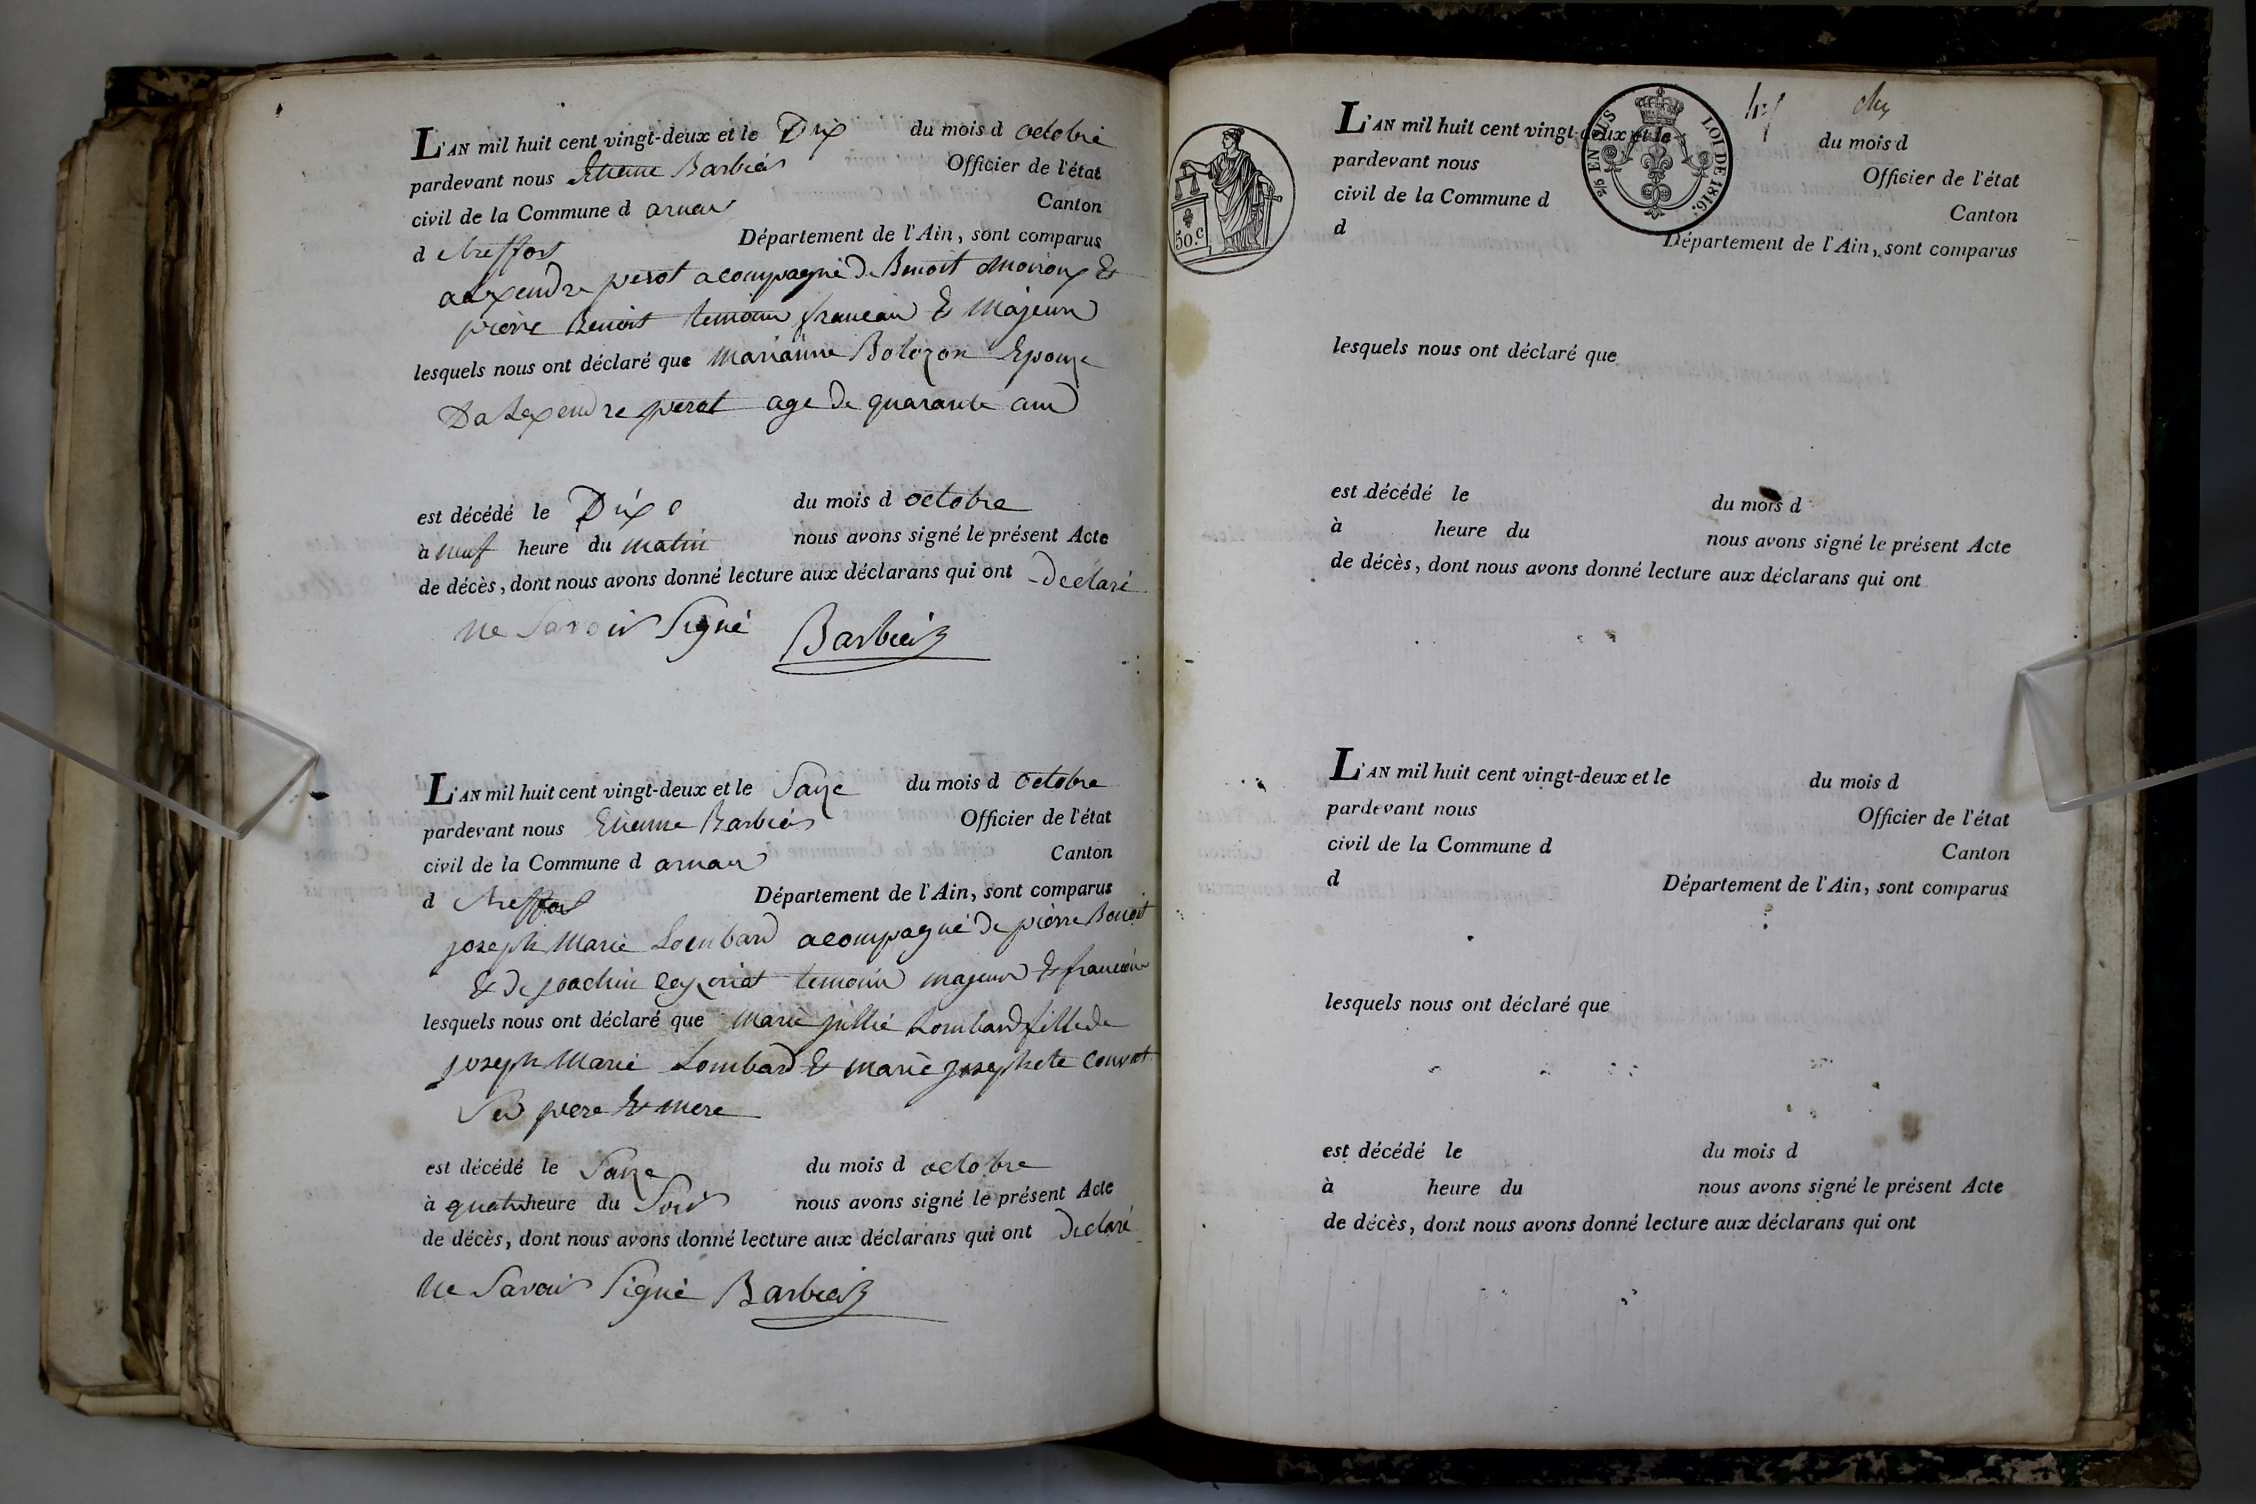 L'AN mil huit cent vingt-deux et le Dix du mois d octobre
pardevant nous Etienne Barbier Officier de l'état
civil de la Commune d arnan Canton
d treffort Département de l'Ain, sont comparus
perot acompagné De Benoit &
pierre Benoit temoins & Majeurs
lesquels nous ont déclaré que Marianne Bolozon Epouze
Dalexendre perot age De quarante ans
est décédé le Dix du mois d octobre
à neuf heure du matin nous avons signé le présent Acte
de décès, dont nous avons donné lecture aux déclarans qui ont declaré
Ne Savoir Signé Barbier
L'AN mil huit cent vingt-deux et le Saize du mois d octobre
pardevant nous Etienne Barbier Officier de l'état
civil de la Commune d arnan Canton
d treffort Département de l'Ain, sont comparus
joseph Marie Lombard acompagné De pierre Benoit
& De joachin temoins majeurs &
lesquels nous ont déclaré que Marie jullie Lombard fille de
joseph Marie Lombard & marie josephete
Ses pere & mere
est décédé le Saize du mois d octobre
à quatre heure du Soir nous avons signé le présent Acte
de décès, dont nous avons donné lecture aux déclarans qui ont Declaré
Ne Savoir Signé Barbier
50.C
EN SUS
LOI DE 1816.
L'AN mil huit cent vingt-deux et le du mois d
pardevant nous Officier de l'état
civil de la Commune d Canton
d Département de l'Ain, sont comparus
lesquels nous ont déclaré que
est décédé le du mois d
à heure du nous avons signé le présent Acte
de décès, dont nous avons donné lecture aux déclarans qui ont
L'AN mil huit cent vingt-deux et le du mois d
pardevant nous Officier de l'état
civil de la Commune d Canton
d Département de l'Ain, sont comparus
lesquels nous ont déclaré que
est décédé le du mois d
à heure du nous avons signé le présent Acte
de décès, dont nous avons donné lecture aux déclarans qui ont